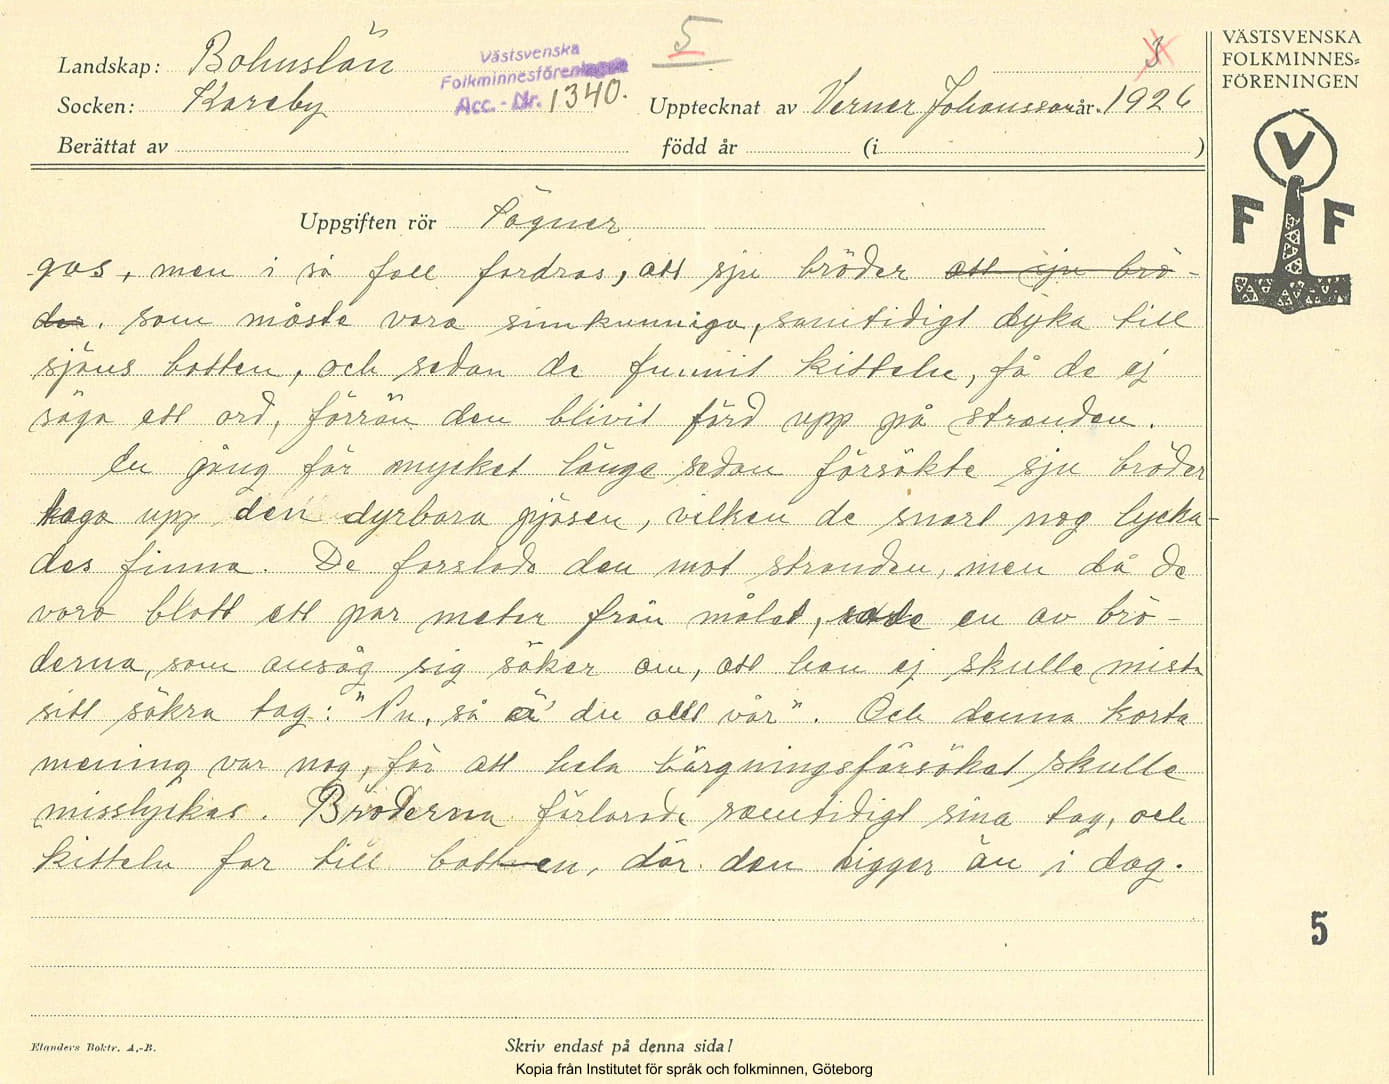 Landskap: Bohuslän
Socken: Kareby
Berättat av
Västsvenska
Folkminnesföreningen
Acc. - Nr. 1340.
5
3
Upptecknat av Verner Johansson år. 1926
född år (i )
VÄSTSVENSKA
FOLKMINNES=
FÖRENINGEN
V
F F
Uppgiften rör Sägner
gas, men i så fall fordras, att sju bröder att sju brö-
der. som måste vara simkunniga, samtidigt dyka till
sjöns botten, och sedan de funnit kitteln, få de ej
säga ett ord, förrän den blivit förd upp på stranden.
En gång för mycket länge sedan försökte sju bröder
taga upp den dyrbara pjäsen, vilken de snart nog lycka-
des finna. De forslade den mot stranden, men då de
voro blott ett par meter från målet, sade en av brö-
derna, som ansåg sig säker om, att han ej skulle mista
sitt säkra tag: "Nu, så ä' du allt vår". Och denna korta
mening var nog, för att hela bärgningsförsöket skulle
misslyckas. Bröderna förlorade samtidigt sina tag, och
kitteln for till botten, där den ligger än i dag.
5
Elanders Boktr. A.-B.
Skriv endast på denna sida!
Kopia från Institutet för språk och folkminnen, Göteborg